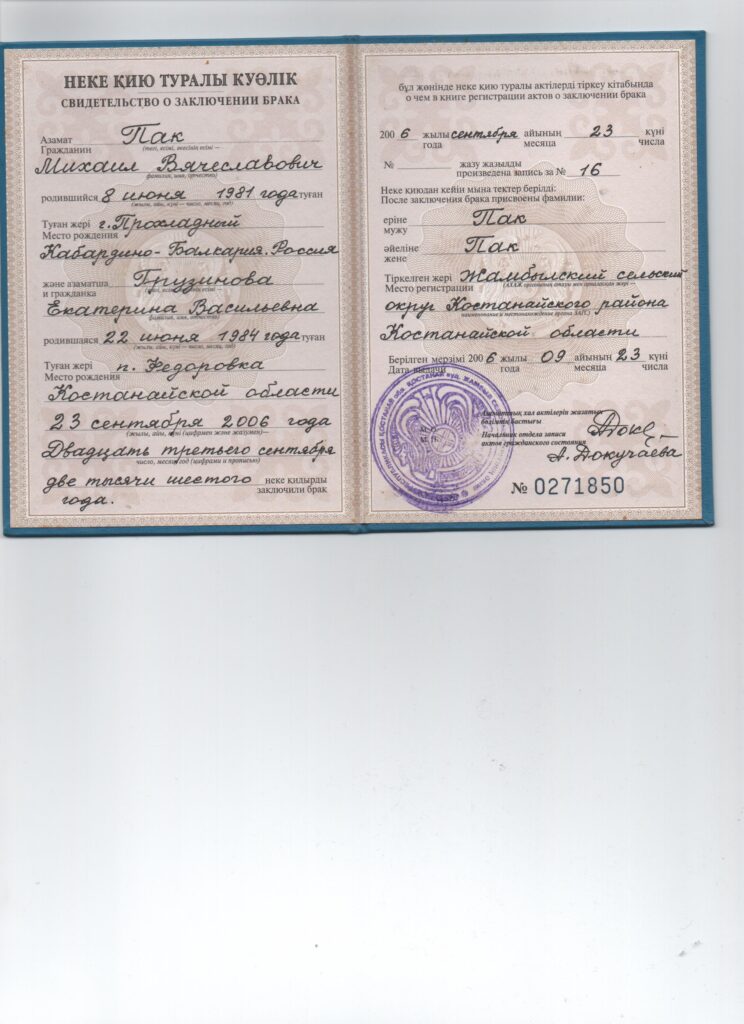 НЕКЕ ҚИЮ ТУРАЛЫ КУӘЛІК
СВИДЕТЕЛЬСТВО О ЗАКЛЮЧЕНИИ БРАКА
Азамат Пак
Гражданин (тегі, есімі, әкесінің есімі —
Михаил Вячеславович
фамилия, имя, отчество)
родившийся 8 июня 1981 года туған
(жылы, айы, күні — число, месяц, год)
Туған жері г. Прохладный
Место рождения
Кабардино-Балкария. Россия
және азаматша Грузинова
и гражданка (тегі, есімі, әкесінің есімі —
Екатерина Васильевна
фамилия, имя, отчество)
родившаяся 22 июня 1984 года туған
(жылы, айы, күні — число, месяц, год)
Туған жері п. Федоровка
Место рождения
Костанайской области
23 сентября 2006 года
(жылы, айы, күні (цифрмен және жазумен)—
Двадцать третьего сентября
число, месяц, год (цифрами и прописью)
две тысячи шестого неке қидырды
года. заключили брак
бұл жөнінде неке қию туралы актілерді тіркеу кітабында
о чем в книге регистрации актов о заключении брака
2006 жылы сентября айының 23 күні
года месяца числа
№ жазу жазылды
произведена запись за № 16
Неке қиюдан кейін мына тектер берілді:
После заключения брака присвоены фамилии:
еріне Пак
мужу
әйеліне Пак
жене
Тіркелген жері Жамбылский сельский
Место регистрации (АХАЖ органының атауы мен орналасқан жері
округ Костанайского района
наименование и местонахождение органа ЗАГС)
Костанайской области
Берілген мерзімі 2006 жылы 09 айының 23 күні
Дата выдачи года месяца числа
М.О.
М.П.
Азаматтық хал актілерін жазатын
бөлімнің бастығы
Начальник отдела записи
актов гражданского состояния
А. Докучаева
№ 0271850